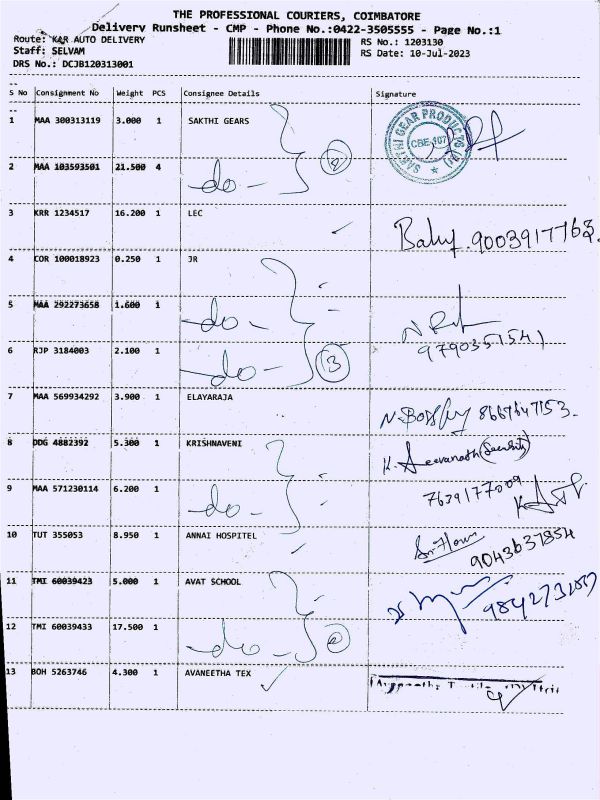 THE PROFESSIONAL COURIERS, COIMBATORE
Delivery Runsheet - CMP - Phone No.:0422-3505555 - Page No.:1
Route: K&R AUTO DELIVERY
Staff: SELVAM
DRS No.: DCJB120313001
RS No.: 1203130
RS Date: 10-Jul-2023
S No Consignment No Weight PCS Consignee Details Signature
1 MAA 300313119 3.000 1 SAKTHI GEARS
SAKTHI GEAR PRODUCTS
CBE-407
2 MAA 103593501 21.500 4 -do- 2
3 KRR 1234517 16.200 1 LEC
9003917763
4 COR 100018923 0.250 1 JR
5 MAA 292273658 1.600 1 -do-
9790351541
6 RJP 3184003 2.100 1 -do- 3
7 MAA 569934292 3.900 1 ELAYARAJA
8667647153
8 DDG 4882392 5.300 1 KRISHNAVENI
K. Jeevanath (Security)
9 MAA 571230114 6.200 1 -do-
7639177009
10 TUT 355053 8.950 1 ANNAI HOSPITEL
9043637854
11 TMI 60039423 5.000 1 AVAT SCHOOL
12 TMI 60039433 17.500 1 -do- 2
13 BOH 5263746 4.300 1 AVANEETHA TEX